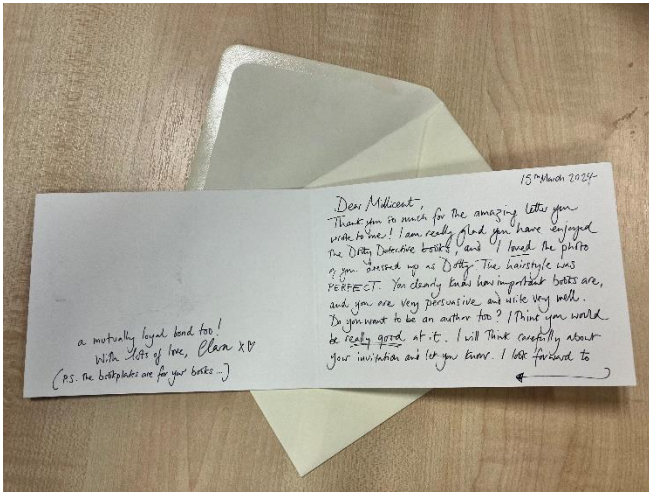 15th March 2024
Dear Millicent,
Thank you so much for the amazing letter you
wrote to me! I am really glad you have enjoyed
the Dotty Detective books, and I loved the photo
of you dressed up as Dotty. The hairstyle was
PERFECT. You clearly know how important books are,
and you are very persuasive and write very well.
Do you want to be an author too? I think you would
be really good at it. I will think carefully about
your invitation and let you know. I look forward to
a mutually loyal bond too!
With lots of love, Clara x♡
(P.S. The bookplates are for your books...)